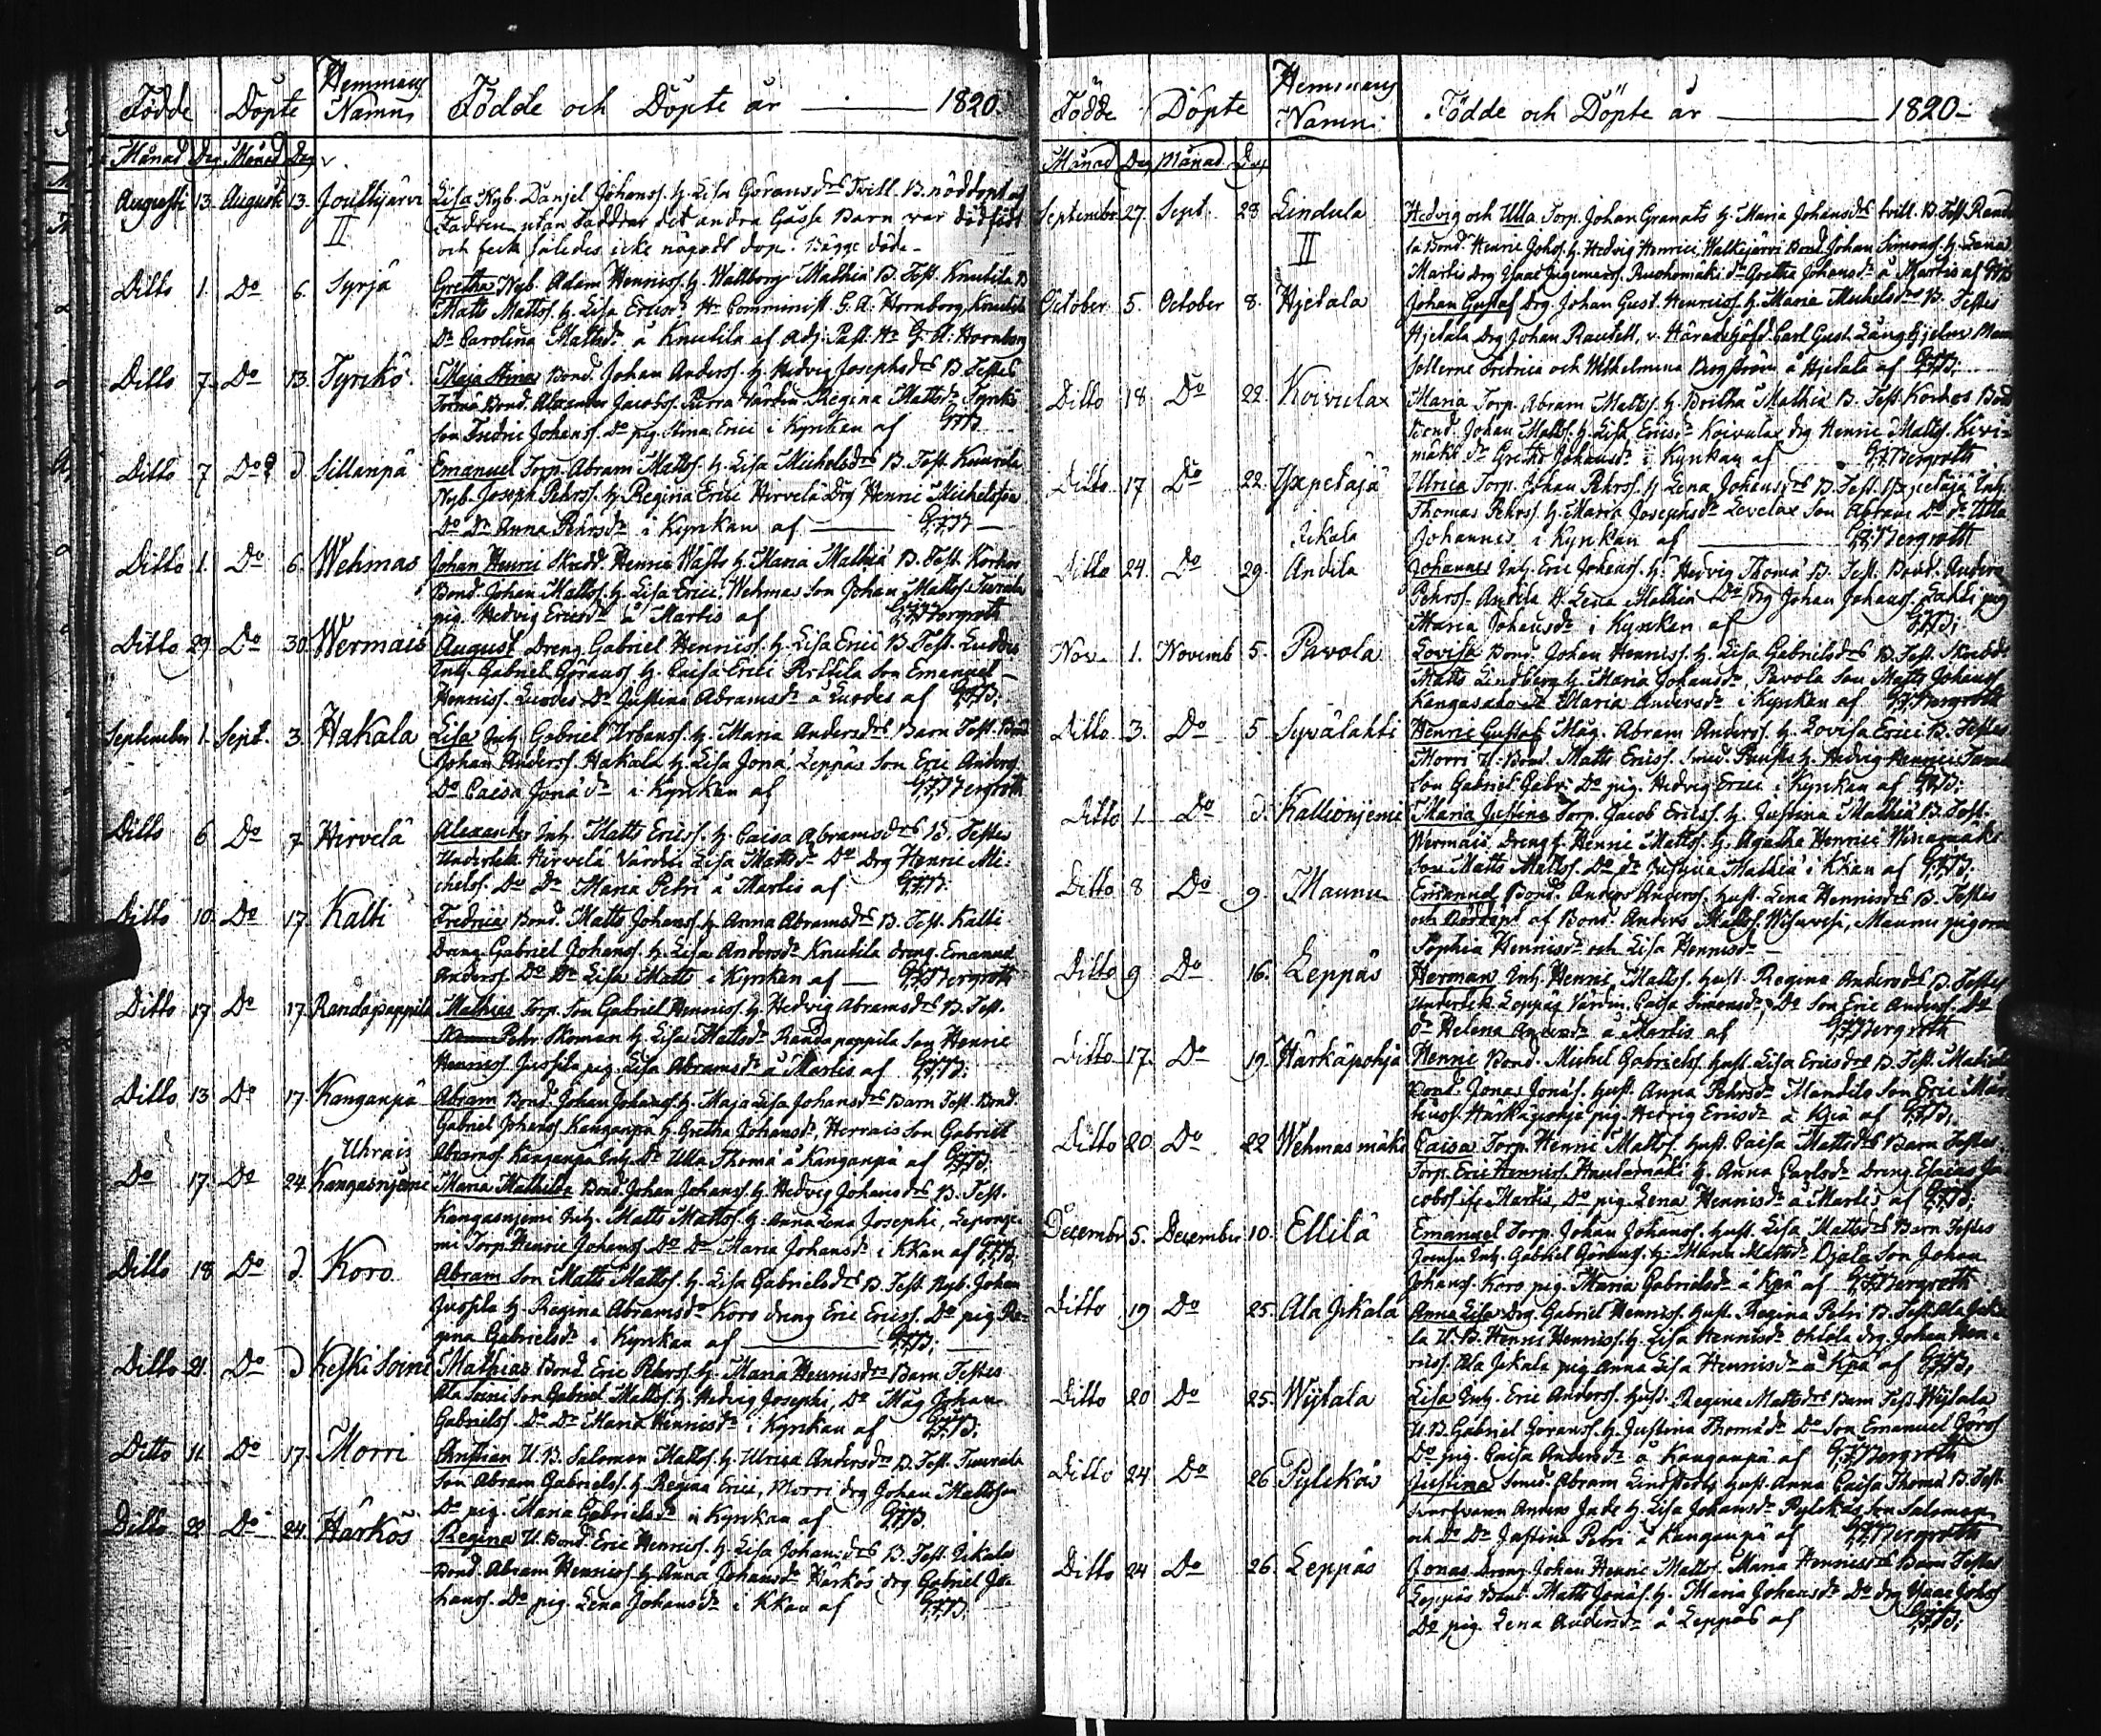 Födde Döpte Hemmans Namn Födde och Döpte år 1820.
Månad Dag Månad Dag
Augusti 13. Augusti 13. Joutsijärvi Lisa Nyb. Danjel Johanss. h. Lisa Göransdrs Tvill. B. nöddöpt af
II Fadren utan Faddrar det andra Gåsse Barn var dödfödt
och feck således icke någodt dop. Bägge döde.
Ditto 1. Do 6. Syrjä Gretha Nyb. Adam Henricss. h. Wallborg Mathiæ B. Test. Knutila B
Matts Mattss. h. Lisa Ericsdr Hr Comminist G. A. Hornborg, Knutila
Dr Carolina Mattsdr å Knutila af Adj. Past. Hr G. A. Hornborg
Ditto 7. Do 13. Tyrikö Maja Stina Bond. Johan Anderss. h. Hedvig Josephsdrs B. Testes
Bond. Alexander Jacobss. Värdin Regina Mattsdr Tyrikö
Son Fredric Johanss. Do pig. Stina Erici i Kyrckan af GFB.
Ditto 7 Do d Sillanpä Emanuel Torp. Abram Mattss. h. Lisa Michelsdrs B. Test. Knuutila
Nyb. Joseph Pehrss. h. Regina Erici Hirvelä Drg Henric Michelsson
Do Dr Anna Pehrsdr i Kyrckan af GFB
Ditto 1. Do 6. Wehmas Johan Henric Skrädd. Henric h. Maria Mathiæ B. Test. Korkos
Bond. Johan Mattss. h. Lisa Erici, Wehmas Son Johan Mattss.
pig. Hedvig Ericsdr å Martis af GFBergroth
Ditto 29. Do 30. Wermais August Dreng. Gabriel Henricss. h. Lisa Erici B. Test. Luodes
Inh. Gabriel Göranss. h. Caisa Erici Son Emanuel
Henricss. Luodes Dr Justina Abramsdr å Luodes af GFB.
September 1. Sept. 3. Hakala Lisa Inh. Gabriel Urbanss. h. Maria Andersdrs Barn Test. Bond
Johan Anderss. Hakala h. Lisa Jonæ, Leppäs Son Eric Anderss.
Do Caisa Jonædr i Kyrckan af GFBergroth
Ditto 6. Do 7. Hirvelä Alexander Inh. Matts Ericss. h. Caisa Abramsdrs B. Testes
Hirvelä Värdin Lisa Mattsdr Do Drg Henric Mi-
chelss. Do Dr Maria Petri å Martis af GFB.
Ditto 10. Do 17. Kalti Fredrica Bond. Matts Johanss. h. Anna Abramsdrs B. Test. Kalti
Dreng Gabriel Johanss. h. Lisa Andersdr Knutila dreng. Emanuel
Anderss. Do Dr Lisa Matts i Kyrckan af GFBergroth
Ditto 17 Do 17 Randapappila Mathias Torp. Son Gabriel Henricss. h. Hedvig Abramsdrs B. Test.
Pehr Skoman h. Lisa Mattsdr Randapappila Son Henric
Henricss. Jussila pig. Lisa Abramsdr å Martis af GFB.
Ditto 13 Do 17 Kanganpä Abram Bond. Johan Johanss. h. Maja Lisa Johansdrs Barn Test. Bond.
Gabriel Johanss. Kanganpä h. Gretha Johansdr, Hervais Son Gabriel
Uhrais Abramss. Kanganpä Inh. Dr Ulla Thomæ å Kanganpä af GFB.
Do 17. Do 24. Kangasnjemi Maria Mathilda Bond. Johan Johanss. h. Hedvig Johansdrs B. Test.
Kangasnjemi Inh. Matts Mattss. h. Anna Lena Josephi,
mi Torp. Henric Johanss. Do Dr Maria Johansdr i Kkan af GFB.
Ditto 18. Do d. Koro Abram Son Matts Mattss. h. Lisa Gabrielsdrs B. Test. Nyb. Johan
Jussila h. Regina Abramsdr Koro dreng Eric Ericss. Do pig Re-
gina Gabrielsdr i Kyrckan af GFB.
Ditto 21. Do d Keski Soini Mathias Bond. Eric Pehrss. h. Maria Henricsdrs Barn Testes
Ala Soini Son Gabriel Mattss. h. Hedvig Josephi, Do Måg Johan
Gabrielss. Do Dr Maria Henricsdr i Kyrckan af GFB.
Ditto 11. Do 17. Morri Christian U. B. Salomon Mattss. h. Ulrica Andersdrs B. Test.
Son Abram Gabrielss. h. Regina Erici, Morri drg Johan Mattsson
Do pig. Maria Gabrielsdr i Kyrckan af GFB.
Ditto 22 Do 24. Härkös Regina U. Bond. Eric Henricss. h. Lisa Johansdrs B. Test. Jekala
Bond. Abram Henricss. h. Anna Johansdr Härkös drg Gabriel Jo-
hanss. Do pig. Lena Johansdr i Kkan af GFB.
Födde Döpte Hemmans Namn Födde och Döpte år 1820.
Månad Dag Månad Dag
September 27. Sept. 28. Lindula Hedvig och Ulla Torp. Johan Granats h. Maria Johansdrs tvill. B. Test.
II Bond. Henric Johss. h. Hedvig Henrici, Walkejärvi Bond. Johan Simonss. h. Lena
Martis Drg Isaac Ingemarss. Ruohomäki dr Gretha Johansdr å Martis af GFB
October 5. October 8. Hjetala Johan Gustaf Drg. Johan Gust. Henricss. h. Maria Michelsdrs B. Testes
Hjetala Drg Johan Rautell, v. Häradshöfd. Carl Gust. Långhjelm Mam-
sellerne Fredrica och Wilhelmina Bergström å Hjetala af GFB.
Ditto 18 Do 22. Koivulax Maria Torp. Abram Mattss. h. Britha Mathiæ B. Test. Korkos Bond
Bond. Johan Mattss. h. Lisa Ericsdr Koivulax drg Henric Mattss. Kivi-
mäki dr Gretha Johansdr i Kyrckan af GFBergroth
Ditto 17 Do 22. Yxpetäjä Ulrica Torp. Johan Pehrss. h. Lena Johansdrs B. Test. Yxpetäjä Inh.
Thomas Pehrss. h. Maria Josephsdr Levelax Son Abram Do dr Ulla
Jekala Johannis i Kyrckan af GFBergroth
Ditto 24. Do 29. Andila Johannes Inh. Eric Johanss. h. Hedvig Thomæ B. Test. Bond. Anders
Pehrss. Andila h. Lena Mathiæ Do drg Johan Johanss. Lahti pig
Maria Johansdr i Kyrckan af GFB.
Nov. 1. Novemb 5. Pavola Lovisa Bond. Johan Henricss. h. Lisa Gabrielsdrs B. Test. Skrädd.
Matts Lindberg h. Maria Johansdr, Pavola Son Matts Johanss.
Kangasaho dr Maria Andersdr i Kyrckan af GFBergroth
Ditto 3. Do 5 Syvälahti Henric Gustaf Måg. Abram Anderss. h. Lovisa Erici B. Testes
Morri U. Bond. Matts Ericss. h. Hedvig Henrici
Son Gabriel Gabr. Do pig. Hedvig Erici i Kyrckan af GFB.
Ditto 1 Do d. Kallionjemi Maria Justina Torp. Jacob Ericss. h. Justina Mathiæ B. Test.
Wermais Dreng. Henric Mattss. h. Agatha Henrici
Son Matts Mattss. Do dr Justina Mathiæ i Kkan af GFB.
Ditto 8 Do 9. Maunu Emanuel Bond. Anders Anderss. hust. Lena Henricsdrs B. Testes
och nöddöpt af Bond. Anders Mattss. Maunu pigorna
Sophia Henricsdr och Lisa Henricsdr
Ditto 9 Do 16. Leppäs Herman Inh. Henric Mattss. hust. Regina Andersdrs B. Testes
Leppäs Värdin. Caisa Simonsdr, Do Son Eric Anderss. Do
dr Helena Andersdr å Martis af GFBergroth
Ditto 17. Do 19. Härkäpohja Henric Bond. Michel Gabrielss. hust. Lisa Ericsdrs B. Test.
Bond. Jonas Jonæss. hust. Anna Pehrsdr Mandila Son Eric Mat-
thiæss. Härkäpohja pig. Hedvig Ericsdr å Kpä af GFB.
Ditto 20. Do 22 Wehmas mäki Caisa Torp. Henric Mattss. hust. Caisa Mattsdrs Barn Testes
Torp. Eric Henricss. h. Anna Carlsdr dreng Elaias Ja-
cobss. Martis, Do pig. Lena Henricsdr å Martis af GFB.
December 5. December 10. Ellilä Emanuel Torp. Johan Johanss. hust. Lisa Mattsdrs Barn Testes
Joensu Inh. Gabriel Göranss. h. Maria Mattsdr Ojala Son Johan
Johanss. Koro pig. Maria Gabrielsdr å Kpä af GFBergroth
Ditto 19 Do 25. Ala Jekala Anna Lisa Drg. Gabriel Henricss. hust. Regina Petri B. Test. Ala Jeka-
la U. B. Henric Henricss. h. Lisa Henricsdr Ohlola drg. Johan Hen-
ricss. Ala Jekala pig. Anna Lisa Henricsdr å Kpä af GFB.
Ditto 20 Do 25. Wytala Lisa Inh. Eric Anderss. hust. Regina Mattsdrs Barn Test. Wytala
U. B. Gabriel Göranss. h. Justina Thomædr Do Son Emanuel Görss
Do pig. Caisa Andersdr å Kanganpä af GFBergroth
Ditto 24 Do 26 Pylckäs Justina Smed. Abram Lindstedts hust. Anna Caisa Thomæ B. Test.
Anders h. Lisa Johansdr Pylckäs Son Salomon
och Do Dr Justina Petri å Kanganpä af GFBergroth
Ditto 24 Do 26. Leppäs Jonas Dreng. Johan Henric Mattss. Maria Henricsdrs Barn Testes
Leppäs Bond. Matts Jonæss. h. Maria Johansdr Do drg Isaac Johss
Do pig. Lena Andersdr å Leppäs af GFB.